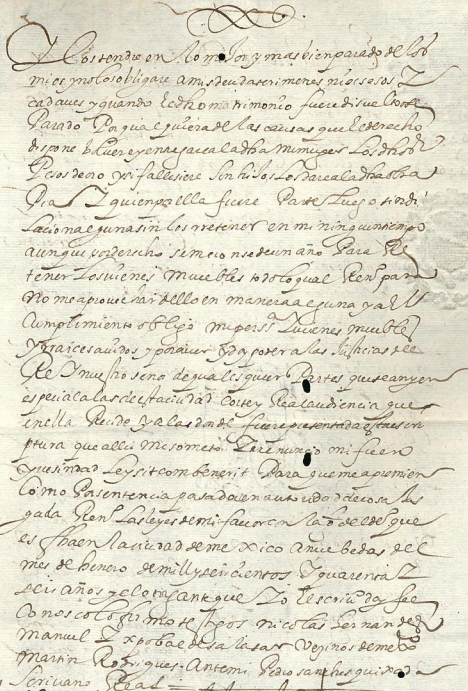 los tendre en lo mejor y mas bien parado de los
mios y no los obligare a mis deudas crimenes ni ecsesos Y
cada ves y quando el dho matrimonio fuere disuelto o se
Parado Por qualquiera de las causas que el derecho
dispone bolvere y entregare a la dha mi muger Los dhos
Pesos de oro y si fallesiere sin hijos Los dare a la dha
Dias Y quien por ella fuere Parte Luego sin di
lacion alguna sin los rretener en mi ningun tiempo
aunque por derecho se me conseda un año Para Re
tener Los vienes muebles todo lo qual Ren.o para
no me aprovechar dello en manera alguna y a el
Cumplimiento obligo mi pers.a Y vienes muebles
y rraices avidos y por aver y doy poder a las Justicias de el
Rey nuestro señor de qualesquier Partes que sean y en
especial a las de esta ciudad Corte y Real audiencia que
en ella Reside y a las donde fuere presentada esta escri
ptura que alli me someto Y renuncio mi fuero
y vesindad Ley sit combenerit Para que me apremien
Como Por sentencia pasada en autoridad de cosa jus
gada Ren.o Las leyes de mi favor con la g.l del d.o que
es fha en la ciudad de mexico a nueve dias de el
mes de henero de mill y seiscientos Y quarenta Y
seis años y el otorgante que Yo el escriv.o doy fee
Conosco lo firmo t.os Nicolas Hernandez
Manuel Y xpobal de salasar Vezinos de mexico
Martin Rodrigues - Ante mi Pedro sanches quixada
escrivano Real